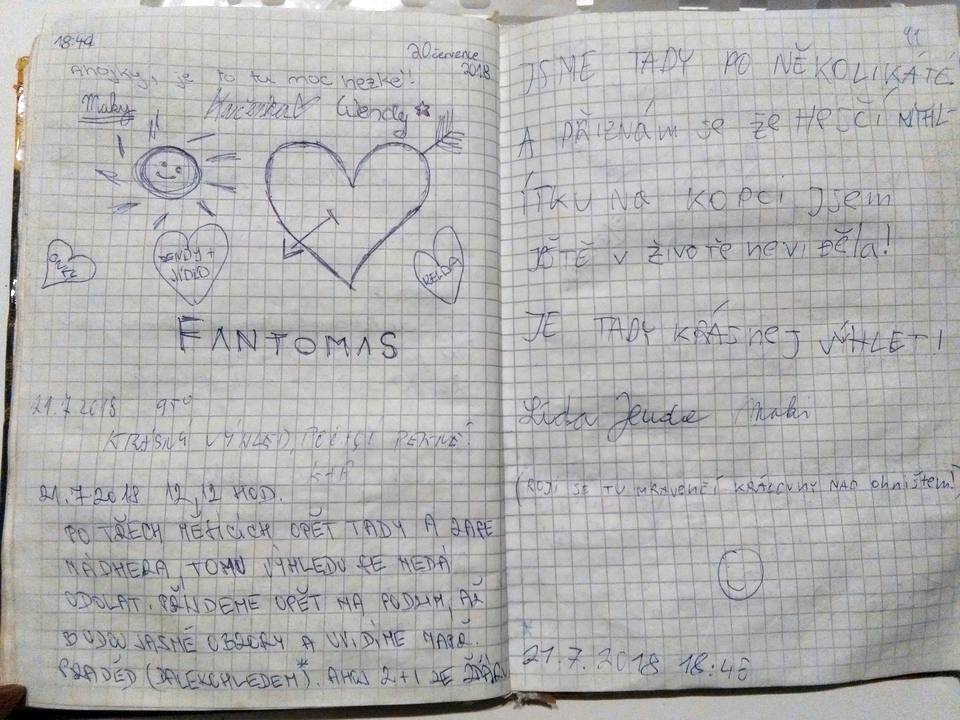 18:49
20 července
2018
Ahojky, je to tu moc hezké!!
Maky Kačenka Wendy
WENDY +
KELDA
FANTOMAS
21.7.2018 9:50
KRÁSNÝ VÝHLED, POČASÍ PĚKNÉ.
K+A
21.7.2018 12,12 HOD.
PO TŘECH MĚSÍCÍCH OPĚT TADY A ZASE
NÁDHERA, TOMU VÝHLEDU SE NEDÁ
ODOLAT. PŘÍJDEME OPĚT NA PODZIM, AŽ
BUDOU JASNÉ OBZORY A UVIDÍME NAPŘ.
PRADĚD (DALEKOHLEDEM)*. AHOJ 2+1 ZE ŽĎÁRU
91
JSME TADY PO NĚKOLIKÁTÉ
A PŘIZNÁM se že Hejčí MHL-
ÍTKU NA KOPCI Jsem
JEŠTĚ v životě neviděla!
JE TADY KRÁSNEJ VÝHLET!
Lída Jenda
(ROJÍ SE TU MRAVENČÍ KRÁLOVNY NAD OHNIŠTĚM!)
*
21.7.2018 18:45